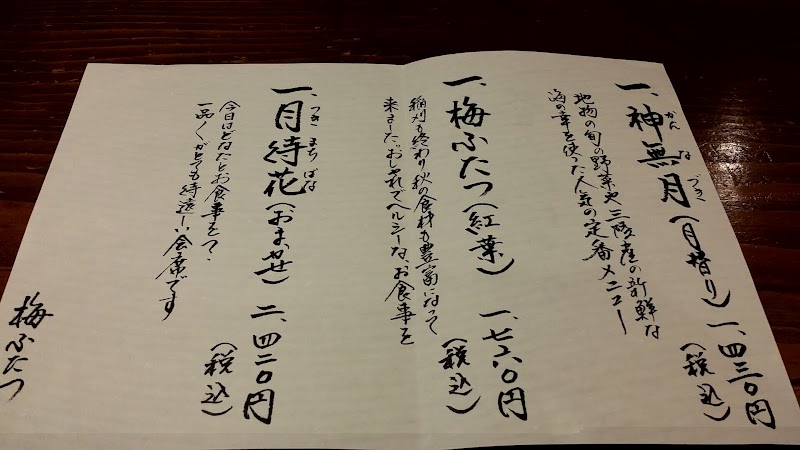 一、神無月(月替り)一、四三〇円
かん な づき
(税込)
地物の旬の野菜や三陸産の新鮮な
海の幸を使った人気の定番メニュー
一、梅ふたつ(紅葉)一、七六〇円
(税込)
稲刈も終わり秋の食材も豊富になって
来ました。おしゃれでヘルシーな、お食事を
一、月待花(おまかせ)二、四二〇円
つき まち ばな
(税込)
今日はどなたとお食事をって、
一品一品がとても待遠しい会席です
梅ふたつ